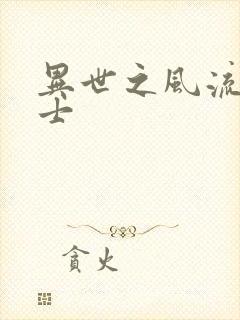 異世之風流
士
貪火